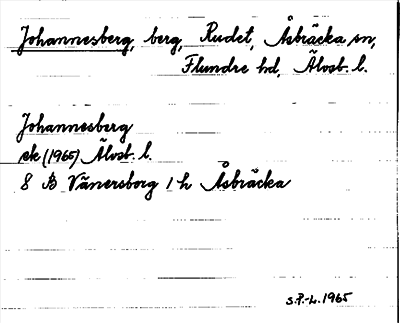 Johannesberg, berg, Rudet, Åsbräcka sn,
Flundre hd, Älvsb. l.
Johannesberg
ek (1965) Älvsb. l.
8 B Vänersborg 1 h Åsbräcka
S.P.-L. 1965